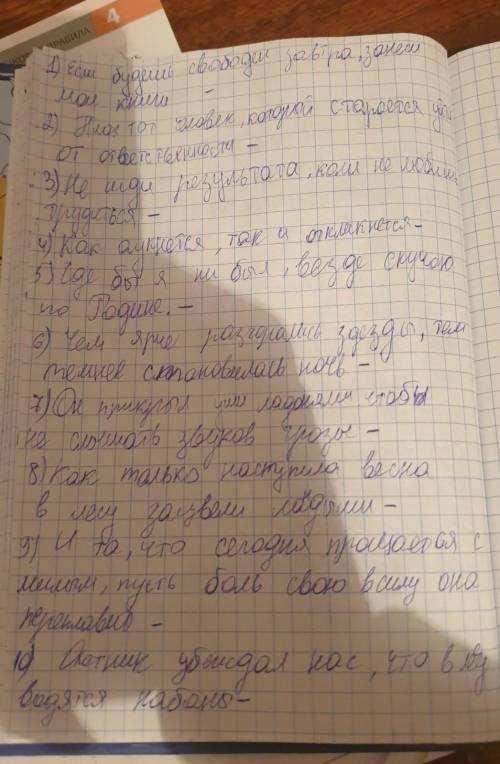 ПРАВИЛА 4
1) Если будешь свободен завтра, занеси
мои книги –
2) Плох тот человек, который старается уйти
от ответственности –
3) Не жди результата, коли не любишь
трудиться –
4) Как аукнется, так и откликнется –
5) Где бы я ни был, везде скучаю
по Родине. –
6) Чем ярче разгорались звезды, тем
темнее становилась ночь –
7) Он прикрыл уши ладонями чтобы
не слышать звуков грозы –
8) Как только наступила весна
в лесу зацвели –
9) И та, что сегодня прощается с
милым, пусть боль свою в силу она
переплавит –
10) Охотник убеждал нас, что в лесу
водятся кабаны –